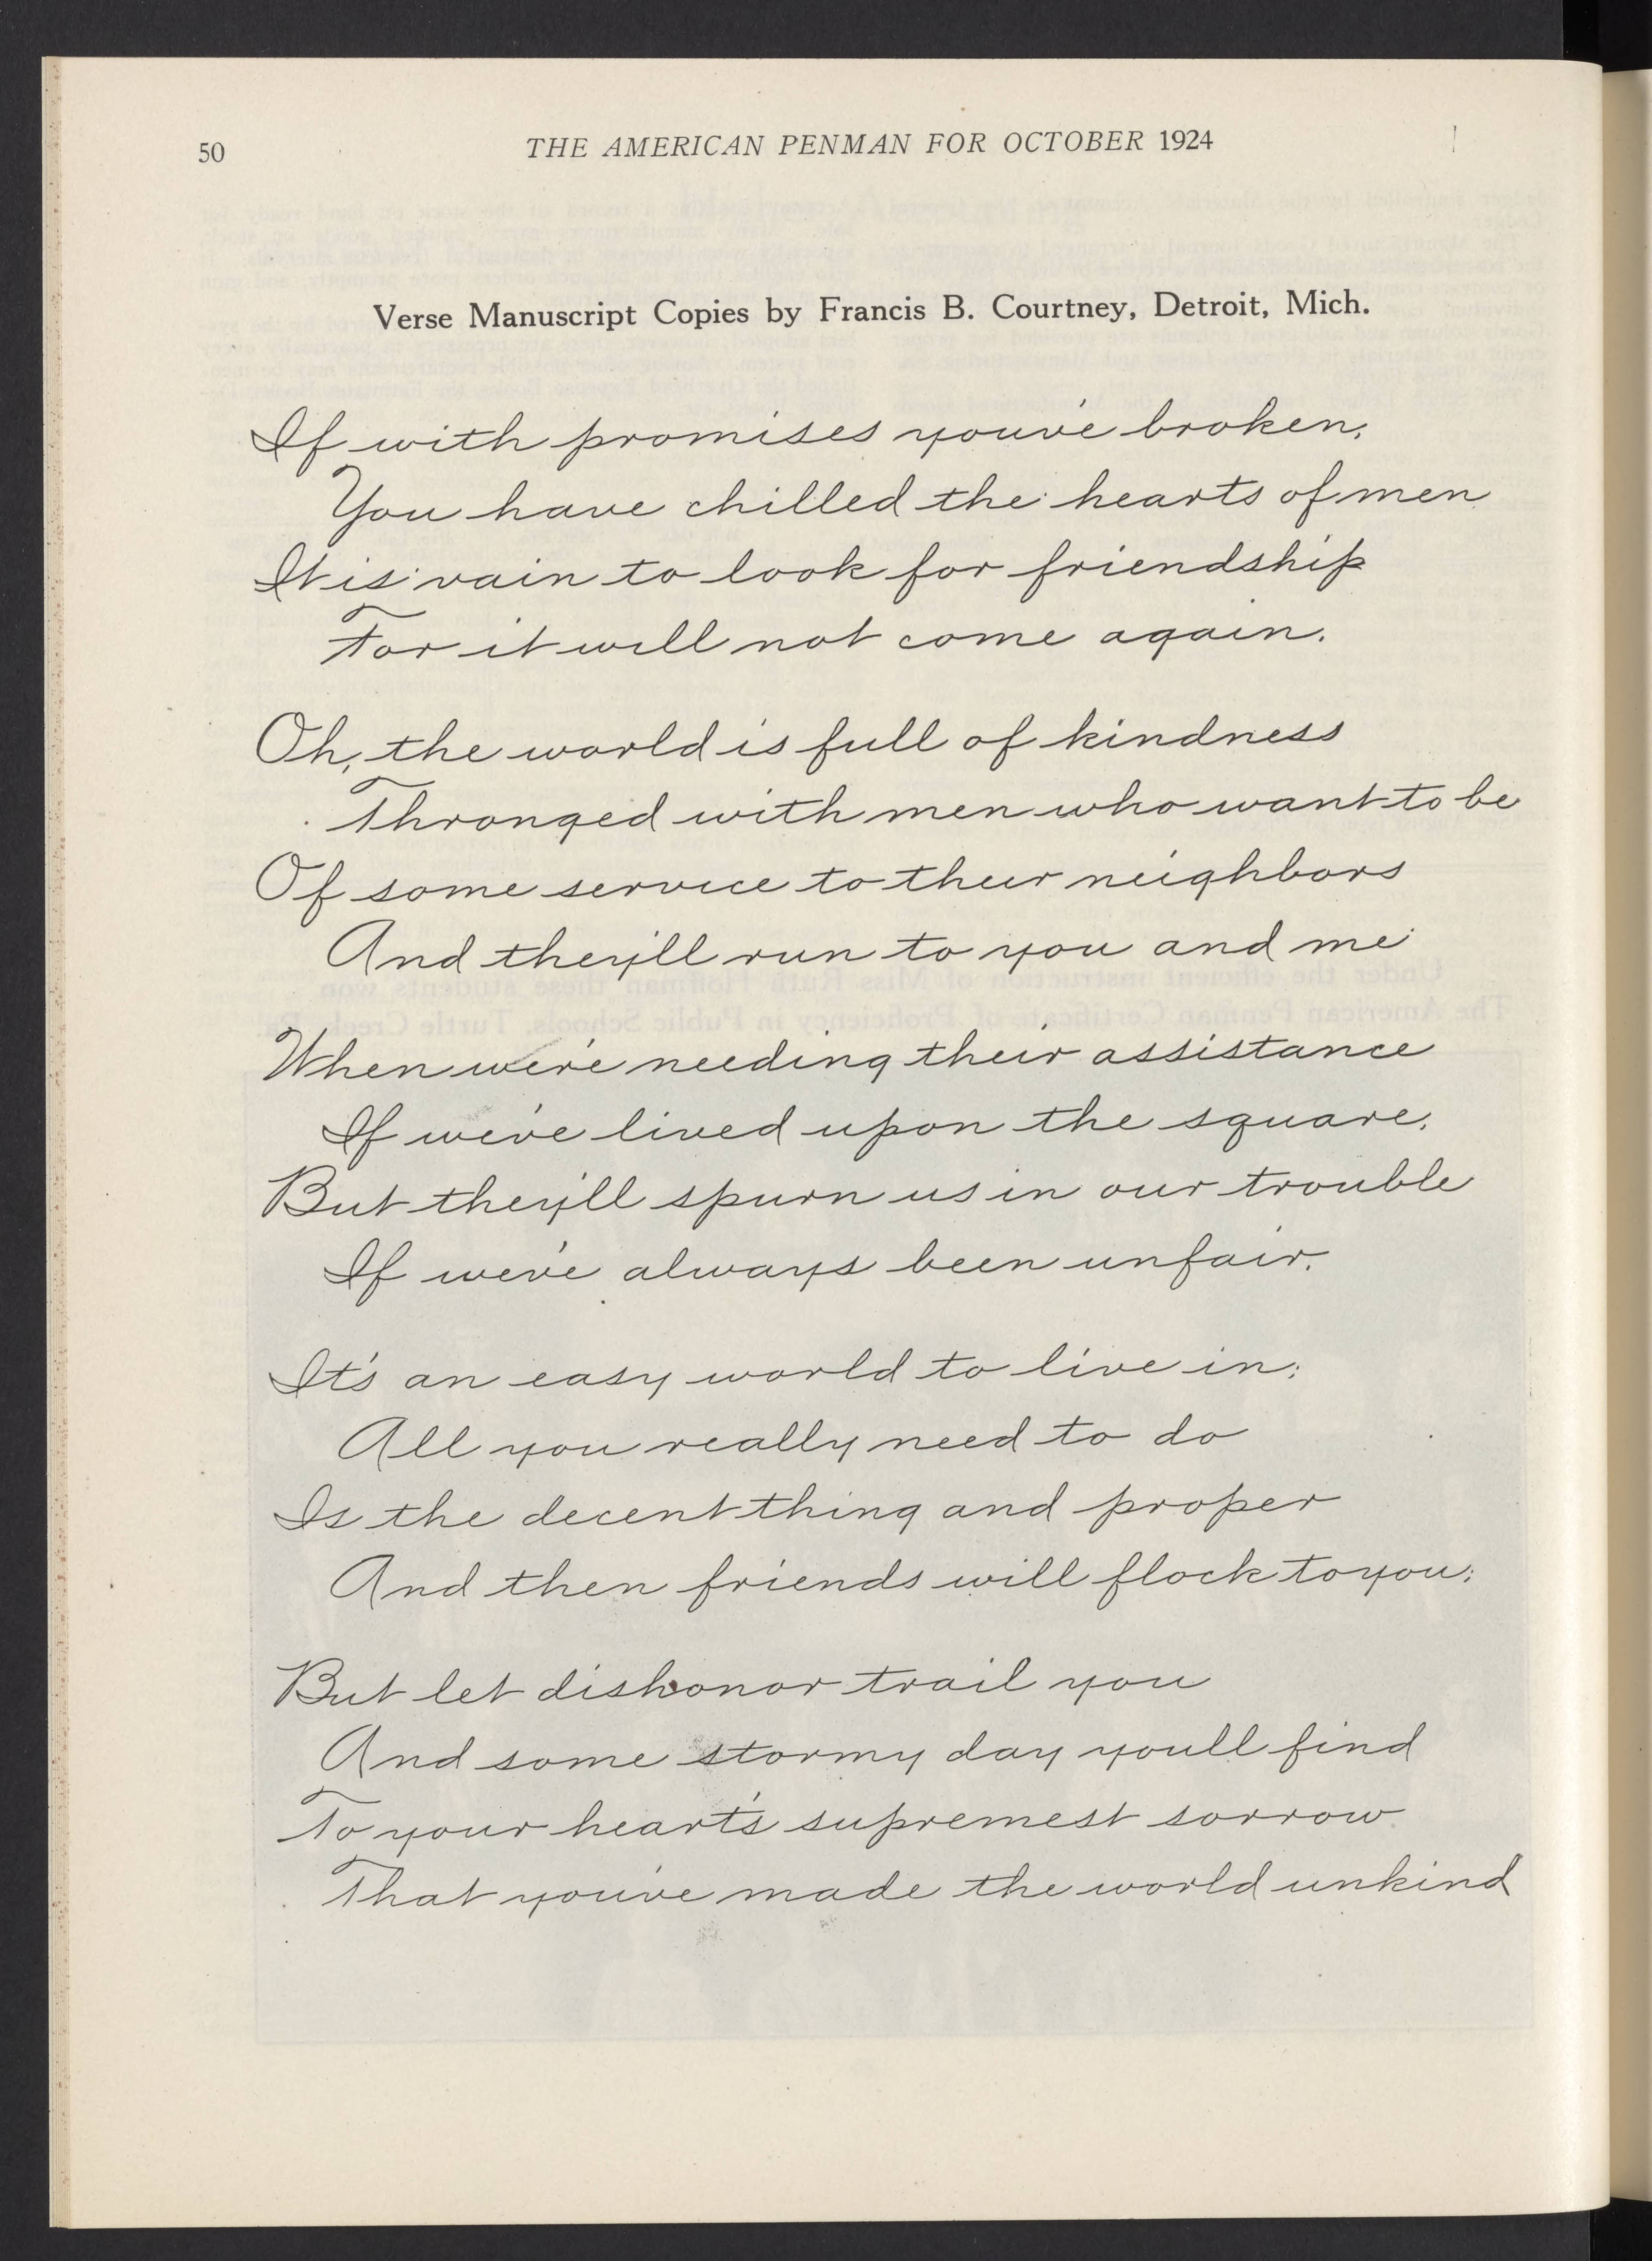 50
THE AMERICAN PENMAN FOR OCTOBER 1924
Verse Manuscript Copies by Francis B. Courtney, Detroit, Mich.
If with promises you've broken,
You have chilled the hearts of men
It is vain to look for friendship
For it will not come again.
Oh, the world is full of kindness
Thronged with men who want to be
Of some service to their neighbors
And they'll run to you and me
When we're needing their assistance
If we've lived upon the square,
But they'll spurn us in our trouble
If we've always been unfair.
It's an easy world to live in;
All you really need to do
Is the decent thing and proper
And then friends will flock to you;
But let dishonor trail you
And some stormy day you'll find
To your heart's supremest sorrow
That you've made the world unkind